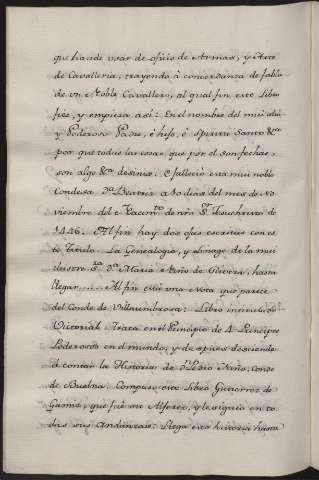 que ha de usar de oficio de Armas, y Arte
de Cavalleria; trayendo à concordanza de fabla
de un Noble Cavallero, al qual fin este Libro
fizo, y empieza asi: En el nombre del mui alto
y Poderoso Padre, è hijo, è Spiritu Santo &ca
por que todas las cosas, que por el son fechas,
son algo &ca desinue. E falleciò esta mui noble
Condesa Dª Beatris a 10 dias del mes de No
viembre del Nacimto de nro Sr Jesuchristo de
1446. Al fin hay dos ojas escritas con es
te Titulo. La Genealogia, y Linage de la mui
Ilustre Sª Dª Maria Niño de Guevara, hasta
llegar.... Al fin està una Nota que parece
del Conde de Villaumbrosa: Libro intitulado
Victorial. Trata en el Principio de 4 Principes
Poderosos en el mundo, y despues desciende
à contar la Historia de Dn Pedro Niño, Conde
de Buelna. Compuso este Libro Gutierrez de
Gamez, que fuè su Alferez, y le siguiò en to
das sus Andanzas: Llega esta historia hasta